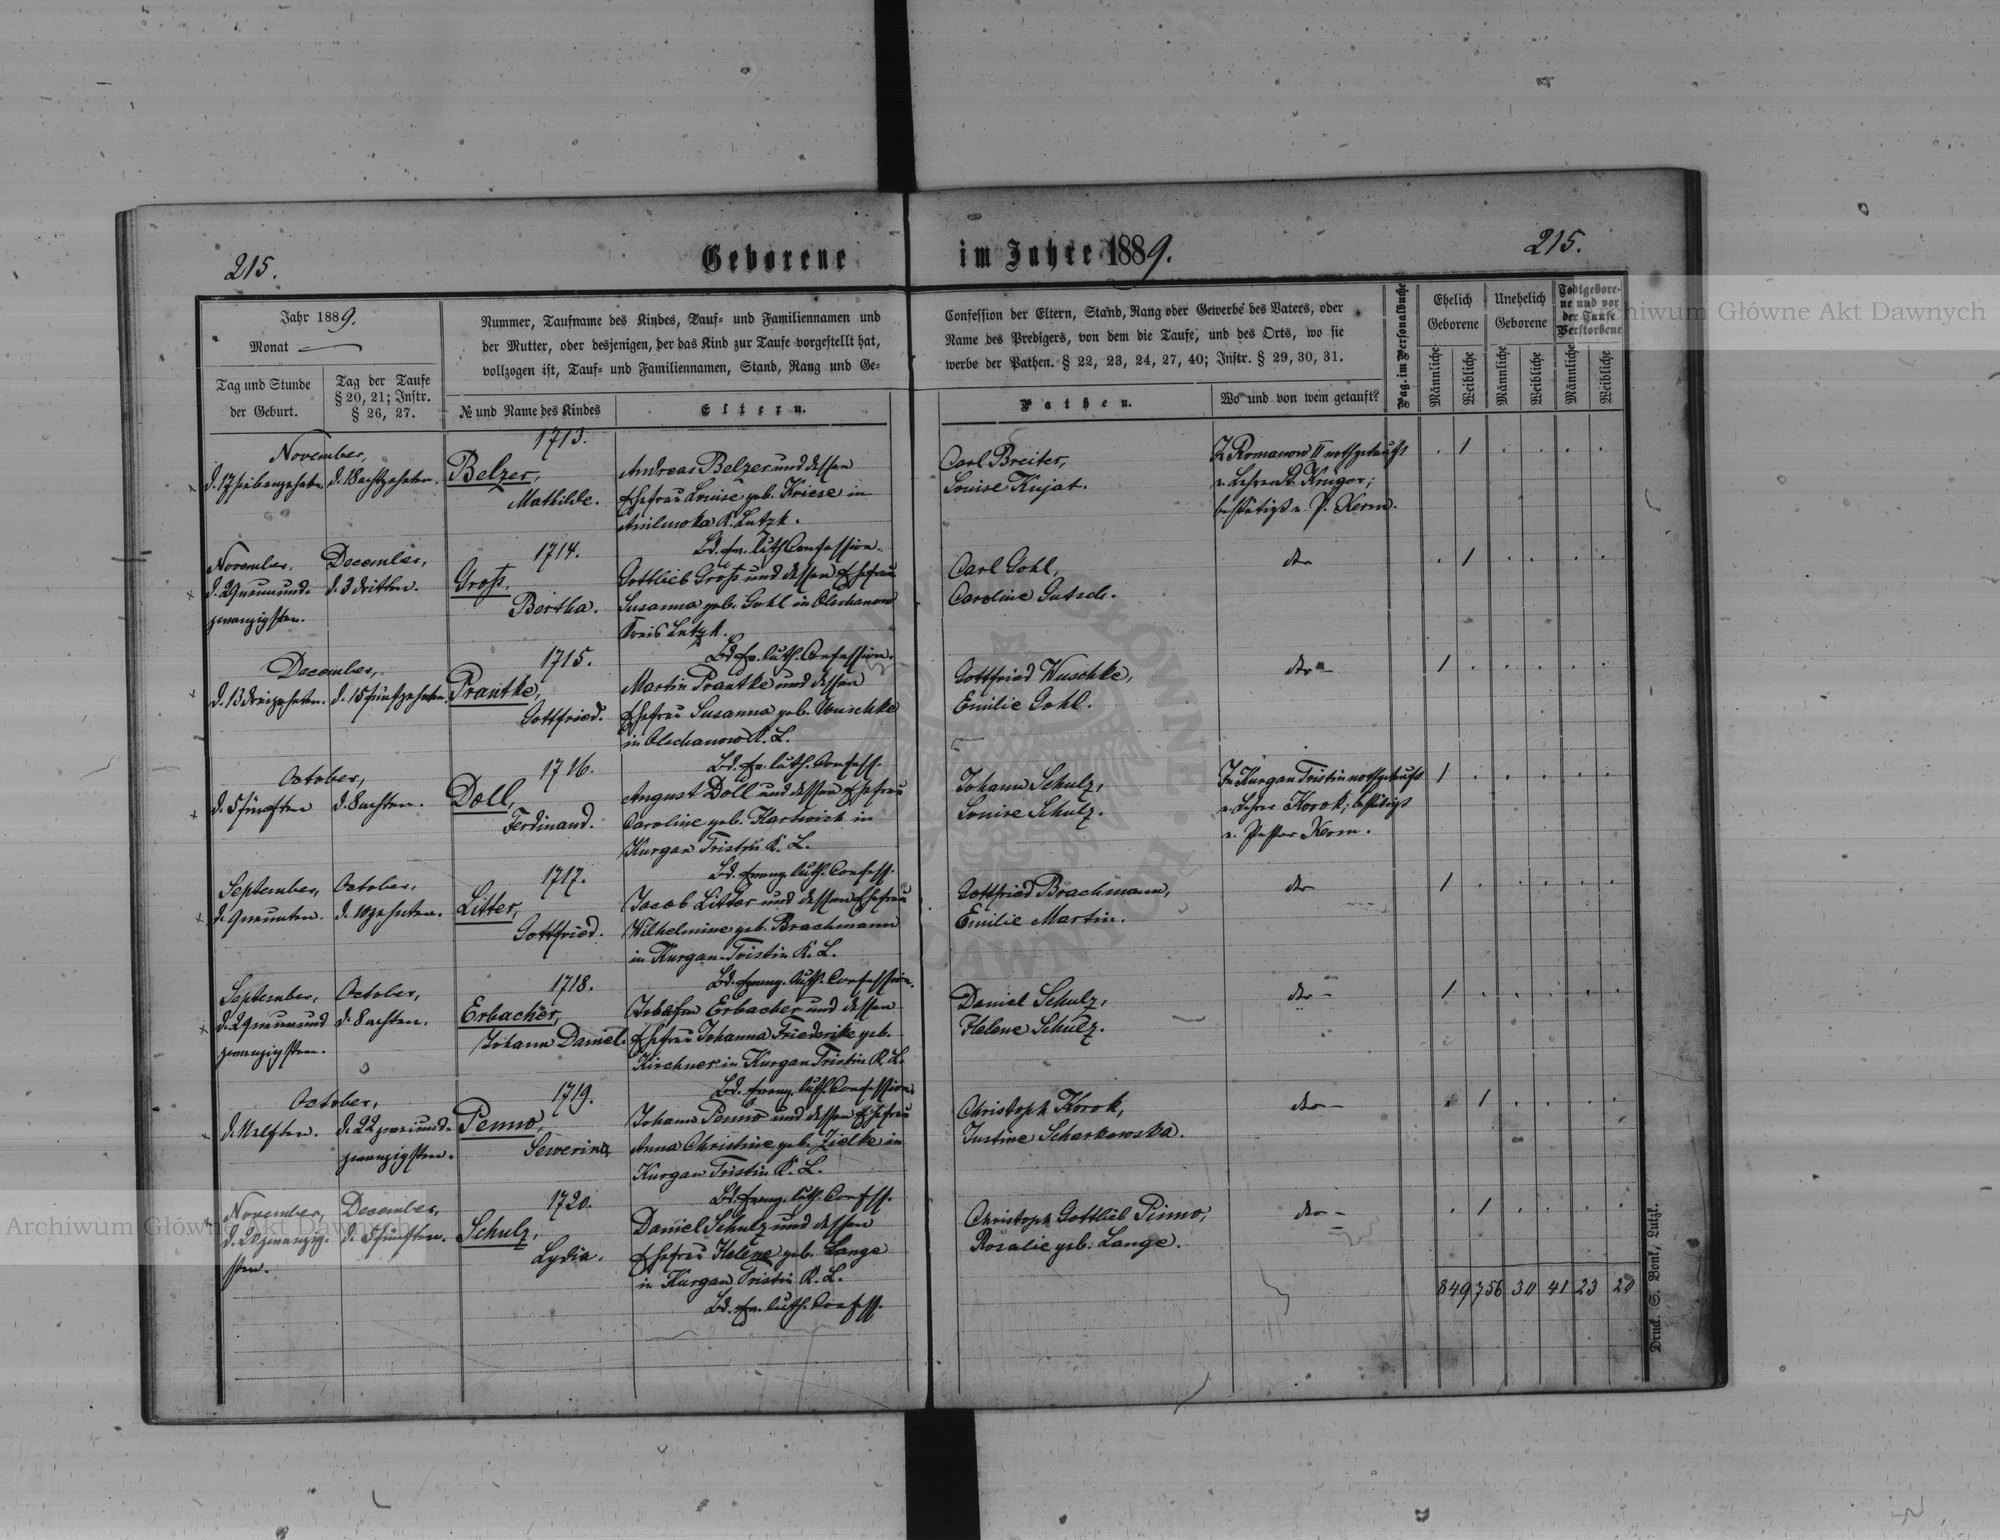 215.
Geborene
im Jahre 1889.
215.
Jahr 1889.
Monat
Tag und Stunde
der Geburt.
Tag der Taufe
§ 20, 21; Instr.
§ 26, 27.
Nummer, Taufname des Kindes, Tauf- und Familiennamen und
der Mutter, oder desjenigen, der das Kind zur Taufe vorgestellt hat,
vollzogen ist, Tauf- und Familiennamen, Stand, Rang und Ge-
№ und Name des Kindes
Eltern.
Confession der Eltern, Stand, Rang oder Gewerbe des Vaters, oder
Name des Predigers, von dem die Taufe, und des Orts, wo sie
werbe der Pathen. § 22, 23, 24, 27, 40; Instr. § 29, 30, 31.
Pathen.
Wo und von wem getauft?
Pag. im Personalbuche
Ehelich
Geborene
Unehelich
Geborene
Todtgebore-
ne und vor
der Taufe
Verstorbene
Männliche
Weibliche
Männliche
Weibliche
Männliche
Weibliche
1713.
November,
d. 17 siebenzehnten. d. 18 achtzehnten.
Belzer,
Mathilde.
Andreas Belzer und dessen
Ehefrau Louise geb. Kriese in
K. Lutzk.
Bd. ev. luth. Confession.
Carl Breiter,
Louise Kujat.
In Romanow II nothgetauft
v. Lehrer Kruger;
bestätigt v. P. Kerm.
1
1714.
November,
d. 29 neunund-
zwanzigsten.
December,
d. 3 dritten.
Gross,
Bertha.
Gottlieb Gross und dessen Ehefrau
Susanna geb. Gohl in Olschanow
Kreis Lutzk.
Bd. ev. luth. Confession.
Carl Gohl,
Caroline Gutsch.
dto
1
1715.
December,
d. 13 dreizehnten. d. 15 fünfzehnten.
Prantke,
Gottfried.
Martin Prantke und dessen
Ehefrau Susanna geb. Wuschke
in Olschanow K. L.
Bd. ev. luth. Confess.
Gottfried Wuschke,
Emilie Gohl.
dto
1
1716.
October,
d. 5 fünften d. 8 achten.
Doll,
Ferdinand.
August Doll und dessen Ehefrau
Caroline geb. Hartwich in
Kurgan Tristin K. L.
Bd. evang. luth. Confess.
Johann Schulz,
Louise Schulz.
In Kurgan Tristin nothgetauft
v. Lehrer Krock; bestätigt
v. Pastor Kerm.
1
1717.
September,
d. 9 neunten.
October,
d. 10 zehnten.
Litter,
Gottfried.
Jacob Litter und dessen Ehefrau
Wilhelmine geb. Brachmann
in Kurgan-Tristin K. L.
Bd. evang. luth. Confession.
Gottfried Brachmann,
Emilie Martin.
dto
1
1718.
September,
d. 29 neunund
zwanzigsten.
October,
d. 8 achten.
Erbacher,
Johann Daniel.
Erbacher und dessen
Ehefrau Johanna Friederike geb.
Kirchner in Kurgan Tristin K. L.
Bd. evang. luth. Confession.
Daniel Schulz,
Helene Schulz.
dto
1
1719.
October,
d. 11 elften. d. 22 zweiund-
zwanzigsten.
Penno,
Sewerina
Johann Penno und dessen Ehefrau
Anna Christine geb. Zielke in
Kurgan Tristin K. L.
Bd. evang. luth. Confess.
Christoph Krock,
Justine Scharkowska.
dto
1
1720.
November,
d. 20 zwanzig-
sten.
December,
d. 5 fünften.
Schulz,
Lydia.
Daniel Schulz und dessen
Ehefrau Helene geb. Lange
in Kurgan Tristin K. L.
Bd. ev. luth. Confess.
Christoph Gottlieb Pinno,
Rosalie geb. Lange.
dto
1
849 756 30 41 23 20
Druck. S. Bonk, Lutzk.
Archiwum Główne Akt Dawnych
Archiwum Główne Akt Dawnych